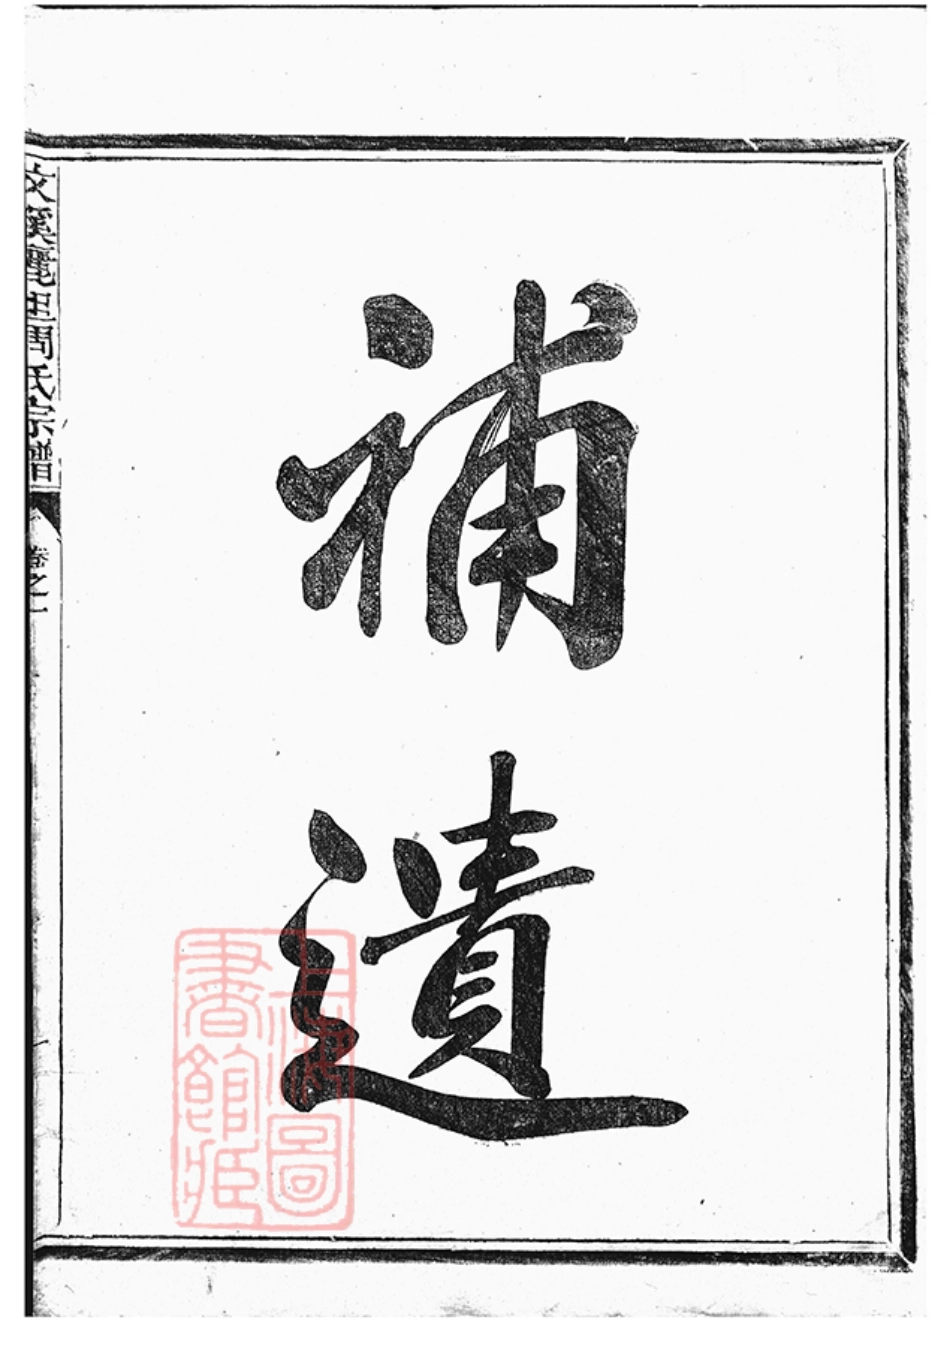 補遺
上海圖
書館藏
文溪周氏宗譜
卷之一